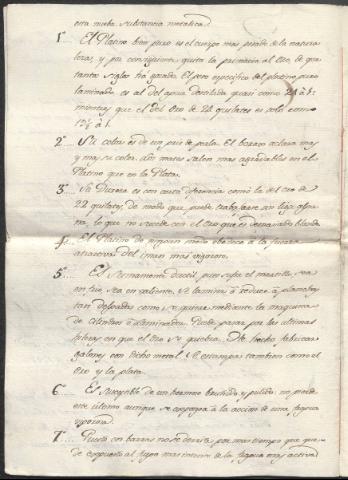 esta nueba substancia metalica.
1º El Platino bien puro es el cuerpo mas pesado de la natura-
leza, y por consiguiente quita la primacia al Oro, de que
tantos siglos ha gozado. El peso especifico del platino puro
laminado es al del agua destilada quasi como 24 à 1:
mientras que el del Oro de 22 quilates es solo como
à 1.
2º Su color es de un gris de perla. El
y mas su color. Los mates salen mas agradables en el
Platino que en la Plata.
3º Su Dureza es con corta diferencia como la del oro de
22 quilates, de modo que puede trabajarse sin liga algu-
na, lo que no sucede con el Oro que es demasiado blando.
4º El Platino de ningun modo obedece à la fuerza
atractiva del iman mas vigoroso.
5º Es Sumamente ductil, pues sufre el martillo, sea
en frio, sea en caliente. Se lamina ò reduce à planchas
tan delgadas como se quiera mediante la maquina
de Cilindros ò Laminador. Puede pasar por las ultimas
hileras en que el Oro se quiebra. De hecho fabrican
galones con dicho metal. Se estampa tambien como el
Oro y la plata.
6º Es Susceptible de un hermoso bruñido y pulido: no pierde
este ultimo aunque se exponga à la accion de una fragua
vigorosa.
7º Puesto en barras no se derrite por mas tiempo que que-
de expuesto al fuego mas intenso de la fragua mas activa